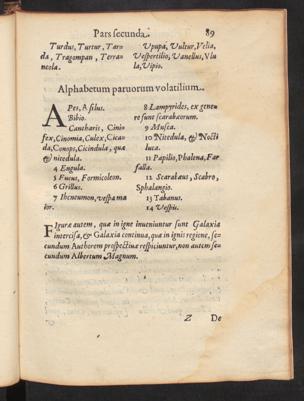 Pars secunda. 89
Turdus, Turtur, Taran
da, Tragompan, Terran
neola.
Vpupa, Vultur, Velia,
Vespertilio, Vanellus, Vlu
la, Vipio.
Alphabetum paruorum volatilium.
APes, Asilus.
Bibio.
Cantharis, Cinis
fex, Cinomia, Culex, Cica
da, Conops, Cicindula, quæ
& nitedula.
4 Engula.
5 Fucus, Formicoleon.
6 Grillus.
7 Ihcneumon, vespa ma
ior.
8 Lampyrides, ex gene
re sunt scarabæorum.
9 Musca.
10 Nitedula, & Nocti
luca.
11 Papilio, Phalena, Far
falla.
12 Scarabæus, Scabro,
Sphalangio.
13 Tabanus.
14 Vespis.
FIguræ autem, quæ in igne inueniuntur sunt Galaxia
intercisa, & Galaxia continua, quæ in ignis regione, se
cundum Authorem prospectiuæ respiciuntur, non autem se
cundum Albertum Magnum.
Z De